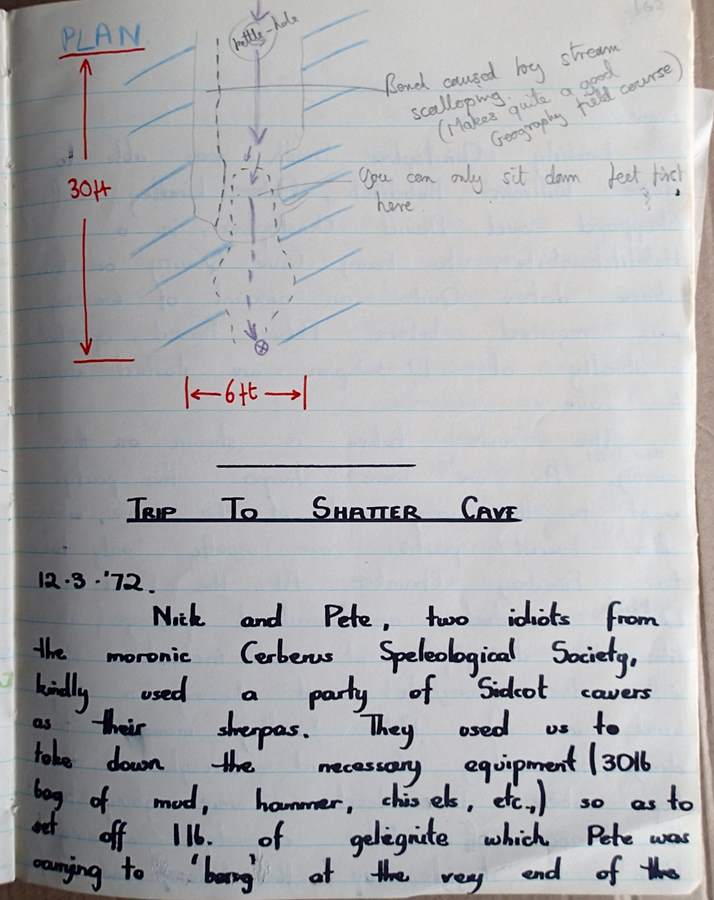 PLAN
bottle-hole
Bend caused by stream
scalloping.
(Makes quite a good
Geography field course)
30ft
You can only sit down feet first
here
6ft
TRIP TO SHATTER CAVE
12.3.'72.
Nick and Pete, two idiots from
the moronic Cerberus Speleological Society,
kindly used a party of Sidcot cavers
as their sherpas. They used us to
take down the necessary equipment (30lb
bag of mud, hammer, chisels, etc.,) so as to
set off 1lb. of geligniute which Pete was
coming to 'bang' at the very end of the